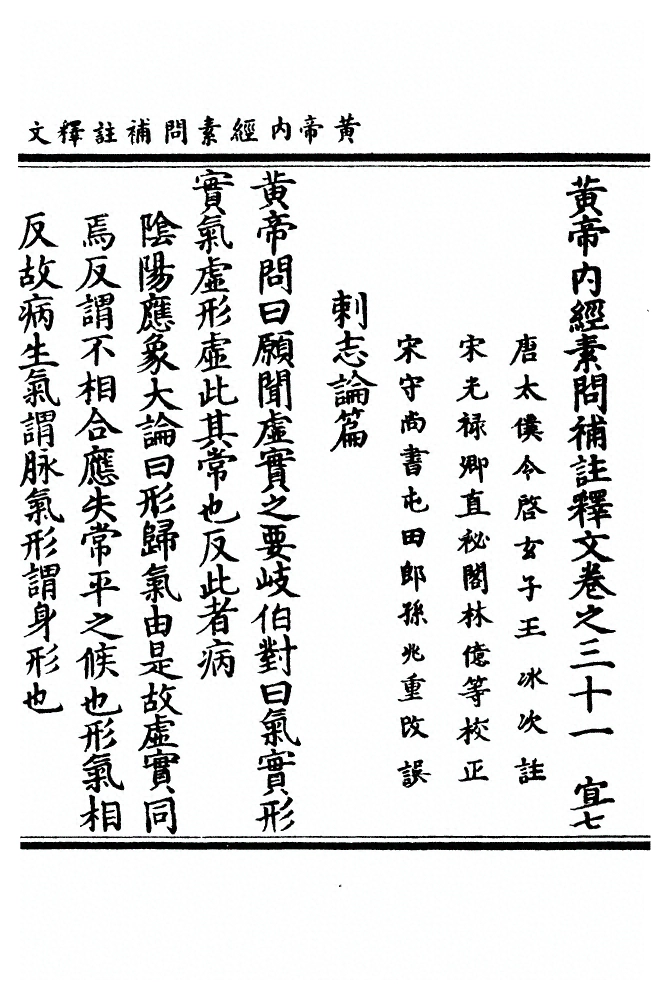 黃帝內經素問補註釋文
黃帝內經素問補註釋文卷之三十一 宜七
唐太僕令啓玄子王冰次註
宋光禄卿直秘閣林億等校正
宋守尚書屯田郎孫兆重改誤
刺志論篇
黃帝問曰願聞虛實之要岐伯對曰氣實形
實氣虛形虛此其常也反此者病
陰陽應象大論曰形歸氣由是故虛實同
焉反謂不相合應失常平之候也形氣相
反故病生氣謂脉氣形謂身形也